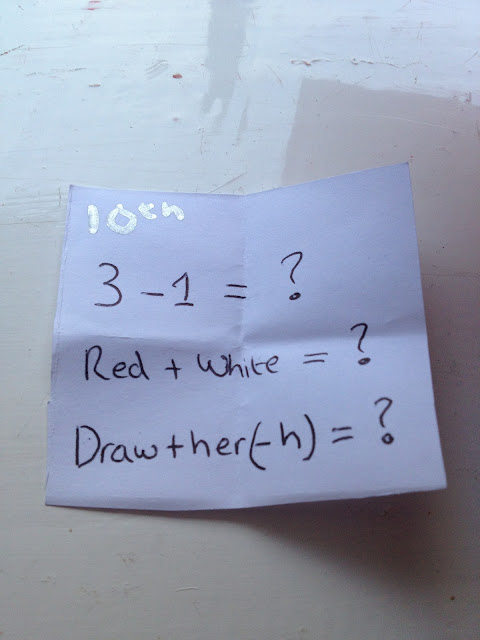 10th
3 - 1 = ?
Red + White = ?
Draw + her (-h) = ?